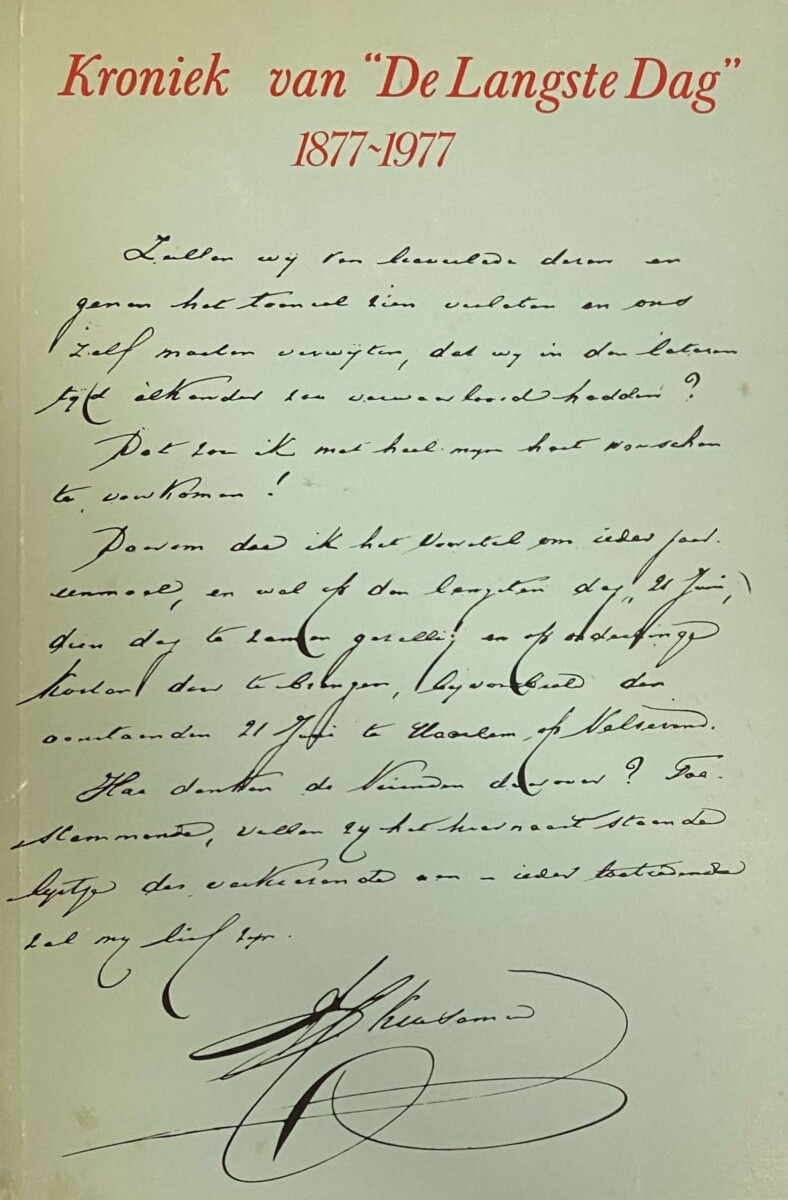 Kroniek van "De Langste Dag"
1877~1977
Zullen wij van lieverlede dezen en
genen het tooneel zien verlaten en ons
zelf moeten verwijten, dat wy in den lateren
tijd elkander zoo verwaarloosd hadden?
Dat zou ik met heel myn hart wenschen
te voorkomen!
Daarom doe ik het voorstel om ieder jaar
eenmaal, en wel op den langsten dag, 21 Juni,
dien dag te zamen gezellig en op onderlinge
kosten door te brengen, bijvoorbeeld den
aanstaanden 21 Juni te Haarlem, op Velserend.
Hoe denken de Vrienden daarover? Toe-
stemmende, vullen zy het hiernaast staande
lystje dus verkiezende aan - ieder toetredende
zal my lief zyn.